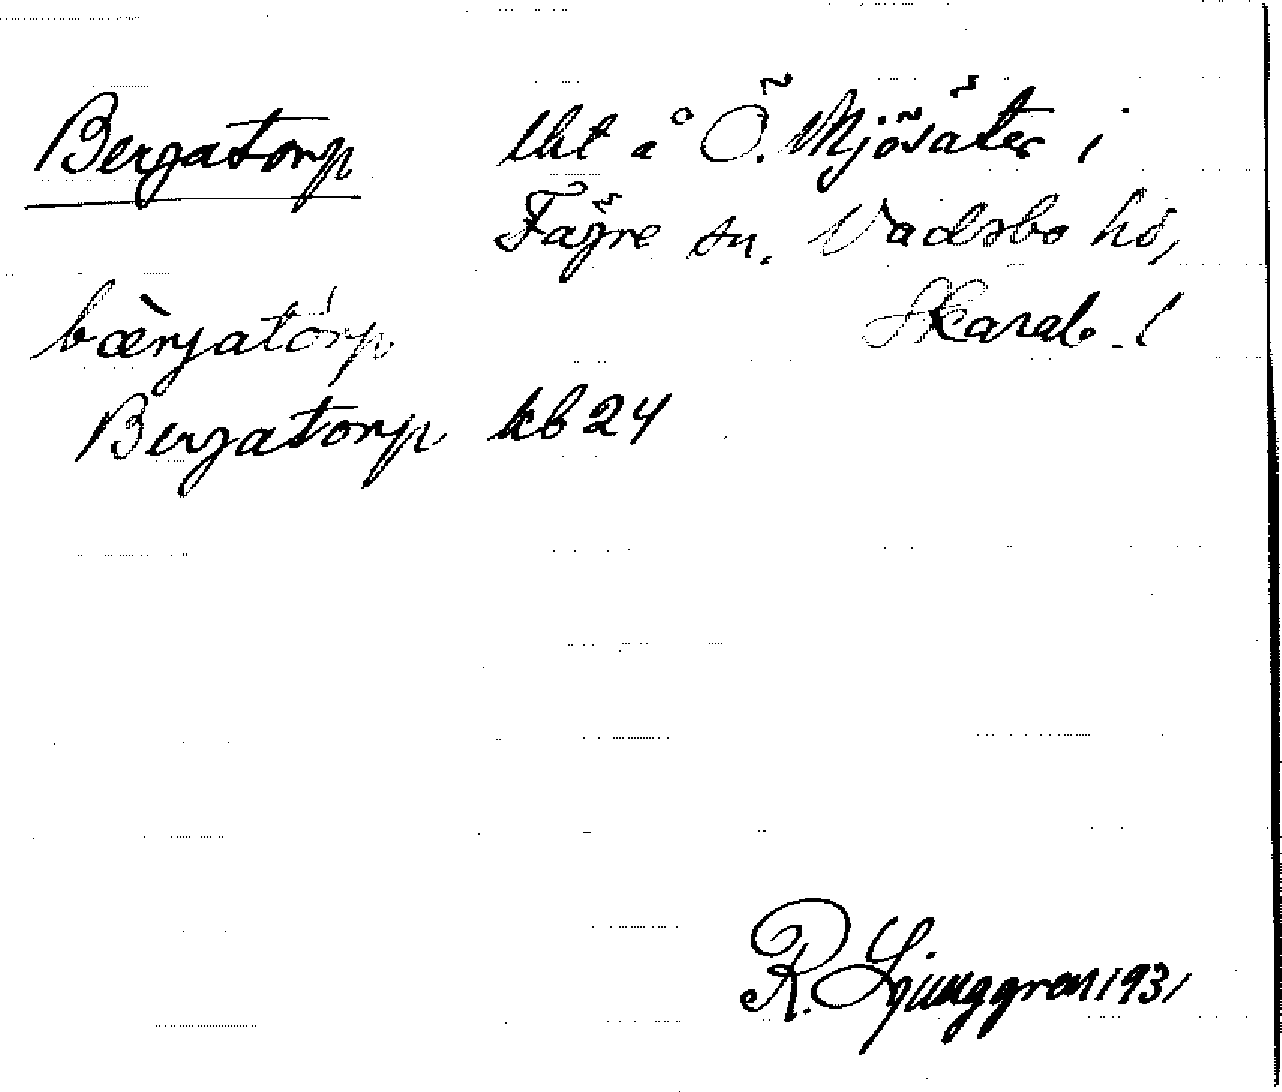 Bergatorp lht å Ö. Mjösäter i
Fägre sn. Vadsbo hd,
Skarab. l
bærjatórp
Bergatorp kb 24
R. Ljunggren 1931